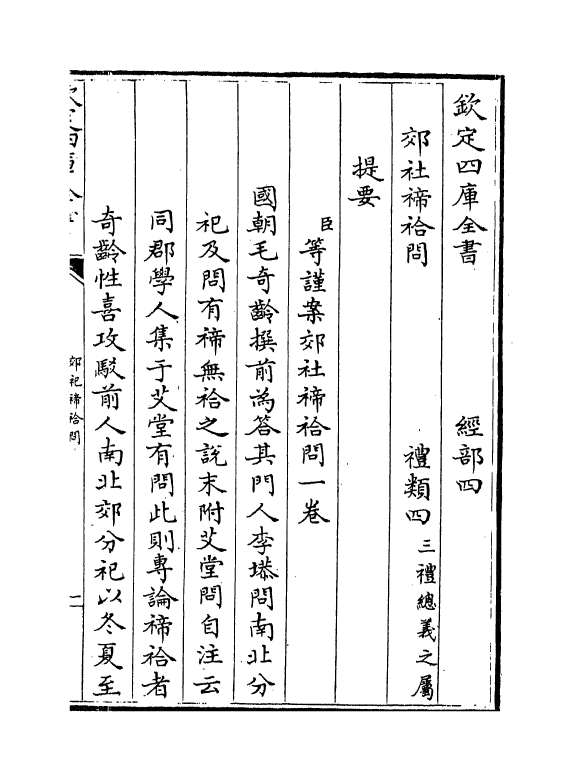 欽定四庫全書　經部四
郊社禘祫問　禮類四三禮總義之屬
提要
臣等謹案郊社禘祫問一卷
國朝毛奇齡撰前為答其門人李塨問南北分
祀及問有禘無祫之說末附艾堂問自注云
同郡學人集于艾堂有問此則專論禘祫者
奇齡性喜攻駁前人南北郊分祀以冬夏至
郊社禘祫問